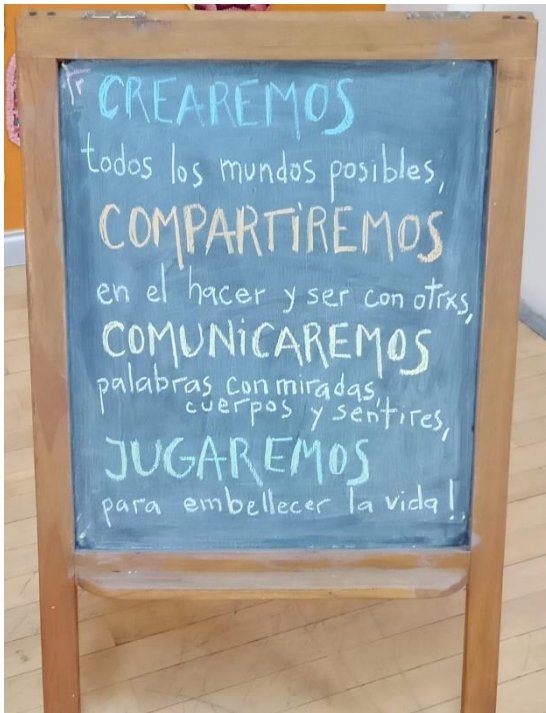 CREAREMOS
todos los mundos posibles,
COMPARTiREMOS
en el hacer y ser con otrxs,
COMUNiCAREMOS
palabras con miradas,
cuerpos y sentires,
JUGAREMOS
para embellecer la vida!